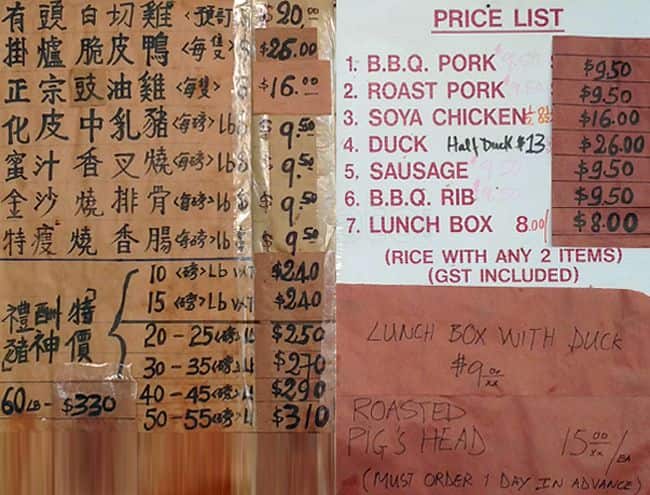 有頭白切雞 <預訂 $20.00
掛爐脆皮鴨 <每隻> $26.00
正宗豉油雞 <每隻> $16.00
化皮中乳豬 <每磅> Lb $9.50
蜜汁香叉燒 <每磅> Lb $9.50
金沙燒排骨 <每磅> Lb $9.50
特瘦燒香腸 <每磅> Lb $9.50
「禮豬」酬神 特價
10 <磅> Lb $240
15 <磅> Lb $240
20-25 <磅> $250
30-35 <磅> $270
40-45 <磅> $290
50-55 <磅> $310
60 LB - $330
PRICE LIST
1. B.B.Q. PORK $9.50
2. ROAST PORK $9.50
3. SOYA CHICKEN $16.00
4. DUCK Half Duck $13 $26.00
5. SAUSAGE $9.50
6. B.B.Q. RIB $9.50
7. LUNCH BOX 8.00/ $8.00
(RICE WITH ANY 2 ITEMS)
(GST INCLUDED)
LUNCH BOX WITH DUCK
$9.00/xx
ROASTED
PIG'S HEAD 15.00/xx /EA
(MUST ORDER 1 DAY IN ADVANCE)